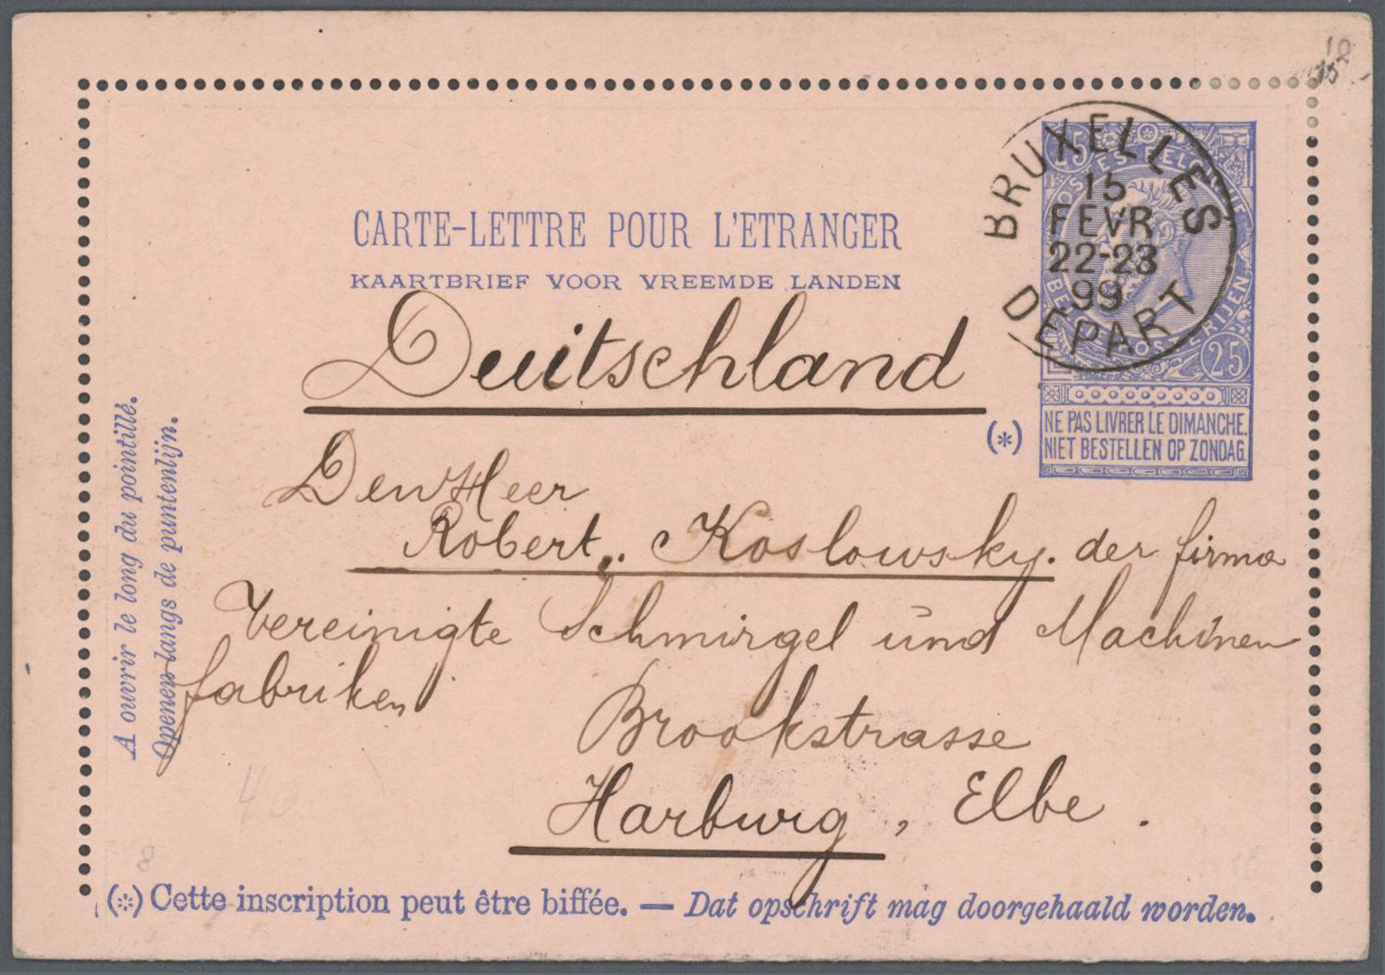 CARTE-LETTRE POUR L'ETRANGER
KAARTBRIEF VOOR VREEMDE LANDEN
BRUXELLES
15
FEVR
22-23
99
DEPART
25
25
NE PAS LIVRER LE DIMANCHE.
NIET BESTELLEN OP ZONDAG.
(*)
Duitschland
Den Heer
Robert. Koslowsky. der firma
Vereinigte Schmirgel und Machinen
fabriken
Brookstrasse
Harburg, Elbe.
A ouvrir le long du pointillé.
Openen langs de puntenlijn.
(*) Cette inscription peut être biffée. — Dat opschrift mag doorgehaald worden.